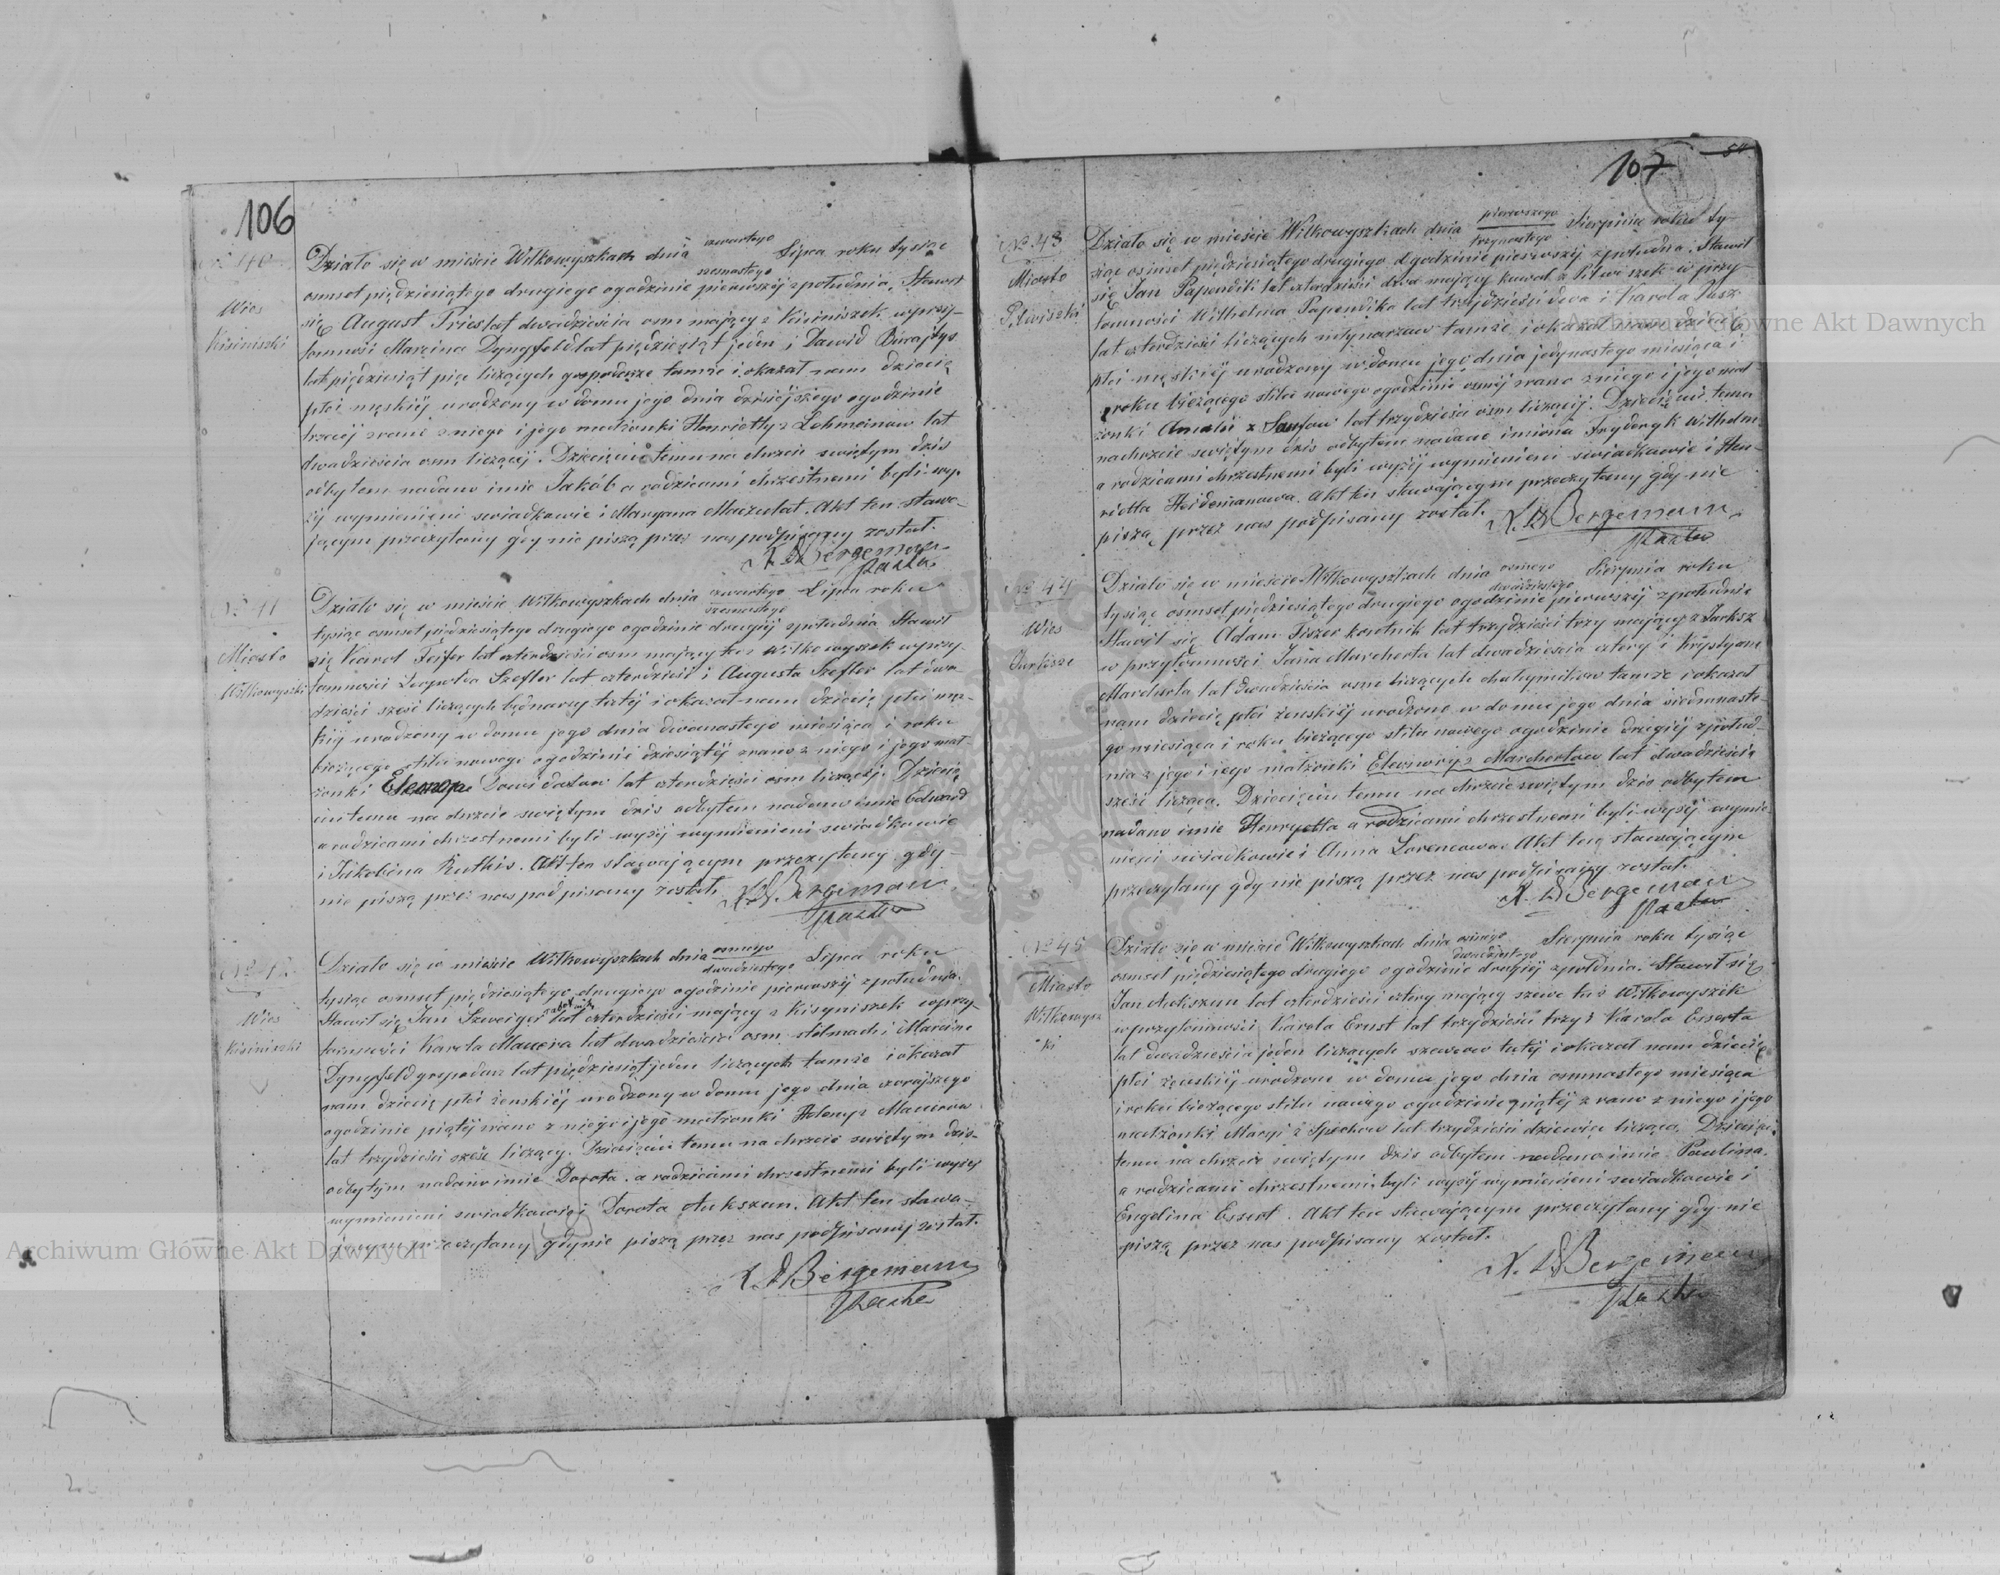 106
№ 40
Wieś
Kisiniszki
Działo się w mieście Wiłkowyszkach dnia czwartego/szesnastego Lipca roku tysiąc
osmset pięćdziesiątego drugiego o godzinie pierwszéj z południa. Stawił
się August Tries lat dwadzieścia osm mający z Kisiniszek w przy-
tomności Marcina Dyngfeld lat pięćdziesiąt jeden i Dawid Burajtys
lat pięćdziesiąt pięć liczących gospodarze tamże i okazał nam dziecię
płci męskiéj urodzony w domu jego dnia dzisiéjszego o godzinie
trzeciéj z rana z niego i jego małżonki Henrietty z Lohmeinow lat
dwadzieścia osm liczącéj. Dziecięciu temu na chrzcie świętym dziś
odbytem nadano imie Jakób a rodzicami chrzestnemi byli wy-
żéj wymienieni świadkowie i Maryana Maczulat. Akt ten stawa-
jącym przeczytany gdy nie piszą przez nas podpisany został.
X. D Bergemann
Pastor
№ 41
Miasto
Wiłkowyszki
Działo się w mieście Wiłkowyszkach dnia czwartego/szesnastego Lipca roku
tysiąc osmset pięćdziesiątego drugiego o godzinie drugiéj z południa Stawił
się Karol Feifer lat czterdzieści osm mający tu z Wiłkowyszek w przy-
tomności Leopolda Szefler lat czterdzieści i Augusta Szefler lat dwa-
dzieści sześć liczących bednarzy tutéj i okazał nam dziecię płci mę-
kiéj urodzony w domu jego dnia dwónastego miesiąca i roku
bieżącego stilu nowego o godzinie dziesiątéj z rana z niego i jego mał-
żonki Eleonory Dawidatow lat czterdzieści osm liczącéj. Dziecię
ciu temu na chrzcie świętym dziś odbytem nadano imie Edward
a rodzicami chrzestnemi byli wyżéj wymienieni świadkowie
i Jakobina Rutkis. Akt ten stawającym przeczytany gdy
nie piszą przez nas podpisany został. X. D. Bergeman
Pastor
№ 42
Wieś
Kisiniszki
Działo się w mieście Wiłkowyszkach dnia osmego/dwudziestego Lipca roku
tysiąc osmset pięćdziesiątego drugiego o godzinie pierwszéj z południa.
Stawił się Jan Szweiger lat czterdzieści mający z Kisyniszek w przy
tomności Karola Mauera lat dwadzieścia osm stelmach i Marcina
Dyngfeld gospodarz lat pięćdziesiąt jeden liczących tamże i okazał
nam dziecię płci żenskiéj urodzony w domu jego dnia wczorajszego
o godzinie piątéj z rana z niego i jego małżonki Heleny z Mauerów
lat trzydzieści sześć liczący. Dziecięciu temu na chrzcie świętym dziś
odbytym nadano imie Dorota. a rodzicami chrzestnemi byli wyżéj
wymienieni świadkowie i Dorota Aukszun. Akt ten stawa-
jącym przeczytany gdy nie piszą przez nas podpisany został.
X D Bergemann
Pastor
107
№ 43
Miasto
Pilwiszki
Działo się w mieście Wiłkowyszkach dnia pierwszego/trzynastego Sierpnia roku ty-
siąc osmset pięćdziesiątego drugiego o godzinie pierwszéj z południa. Stawił
się Jan Papendik lat czterdzieści dwa mający kowal z Pilwiszek w przy
tomności Wilhelma Papendika lat trzydzieści dwa i Karola
lat czterdzieści liczących młynarzow tamże i okazał nam dziecię
płci męskiéj urodzony w domu jego dnia jedynastego miesiąca i
roku bieżącego stilu nowego o godzinie osméj z rana z niego i jego mał
żonki Amalii z lat trzydzieści osm liczącéj. Dziecięciu temu
na chrzcie świętym dziś odbytem nadano imiona Frydryk Wilhelm
a rodzicami chrzestnemi byli wyżéj wymienieni świadkowie i Hen-
rietta Heidemanowa. Akt ten stawającym przeczytany gdy nie
piszą, przez nas podpisany został. X. D Bergemann
Pastor
№ 44
Wieś
Działo się w mieście Wiłkowyszkach dnia osmego/dwudziestego Sierpnia roku
tysiąc osmset pięćdziesiątego drugiego o godzinie pierwszéj z południa
Stawił się Adam Fiszer lat trzydzieści trzy mający z
w przytomności Jana Marcherta lat dwadzieścia cztery i Krystyan
Marcherta lat dwadzieścia osm liczących chałupnikow tamże i okazał
nam dziecię płci żenskiéj urodzone w domu jego dnia siedmnaste-
go miesiąca i roku bieżącego stilu nowego o godzinie drugiéj z połud-
nia z jego i jego małżonki Eleonory z Marchertow lat dwadzieścia
sześć licząca. Dziecięciu temu na chrzcie świętym dziś odbytem
nadano imie Henryetta a rodzicami chrzestnemi byli wyżéj wymie-
nieni świadkowie i Anna Lorencowa. Akt ten stawającym
przeczytany gdy nie piszą przez nas podpisany został.
X. D Bergeman
Pastor
№ 45
Miasto
Wiłkowysz
ki
Działo się w mieście Wiłkowyszkach dnia osmego/dwudziestego Sierpnia roku tysiąc
osmset pięćdziesiątego drugiego o godzinie drugiéj z połdnia. Stawił się
Jan Aukszun lat czterdzieści cztery mający szewc tu z Wiłkowyszek
w przytomności Karola Ernst lat trzydzieści trzy i Karola Esserta
lat dwadzieścia jeden liczących szewcow tutéj i okazał nam dziecię
płci żenskiéj urodzone w domu jego dnia osmnastego miesiąca
i roku bieżącego stilu nowego o godzinie piątéj z rana z niego i jego
małżonki Maryi z Speckow lat trzydzieści dziewięć licząca. Dziecięciu
temu na chrzcie świętym dziś odbytem nadano imie Paulina.
a rodzicami chrzestnemi byli wyżéj wymienieni świadkowie i
Engelina Essert. Akt ten stawającym przeczytany gdy nie
piszą przez nas podpisany został.
X. D Bergemann
Pastor
Archiwum Główne Akt Dawnych
Archiwum Główne Akt Dawnych